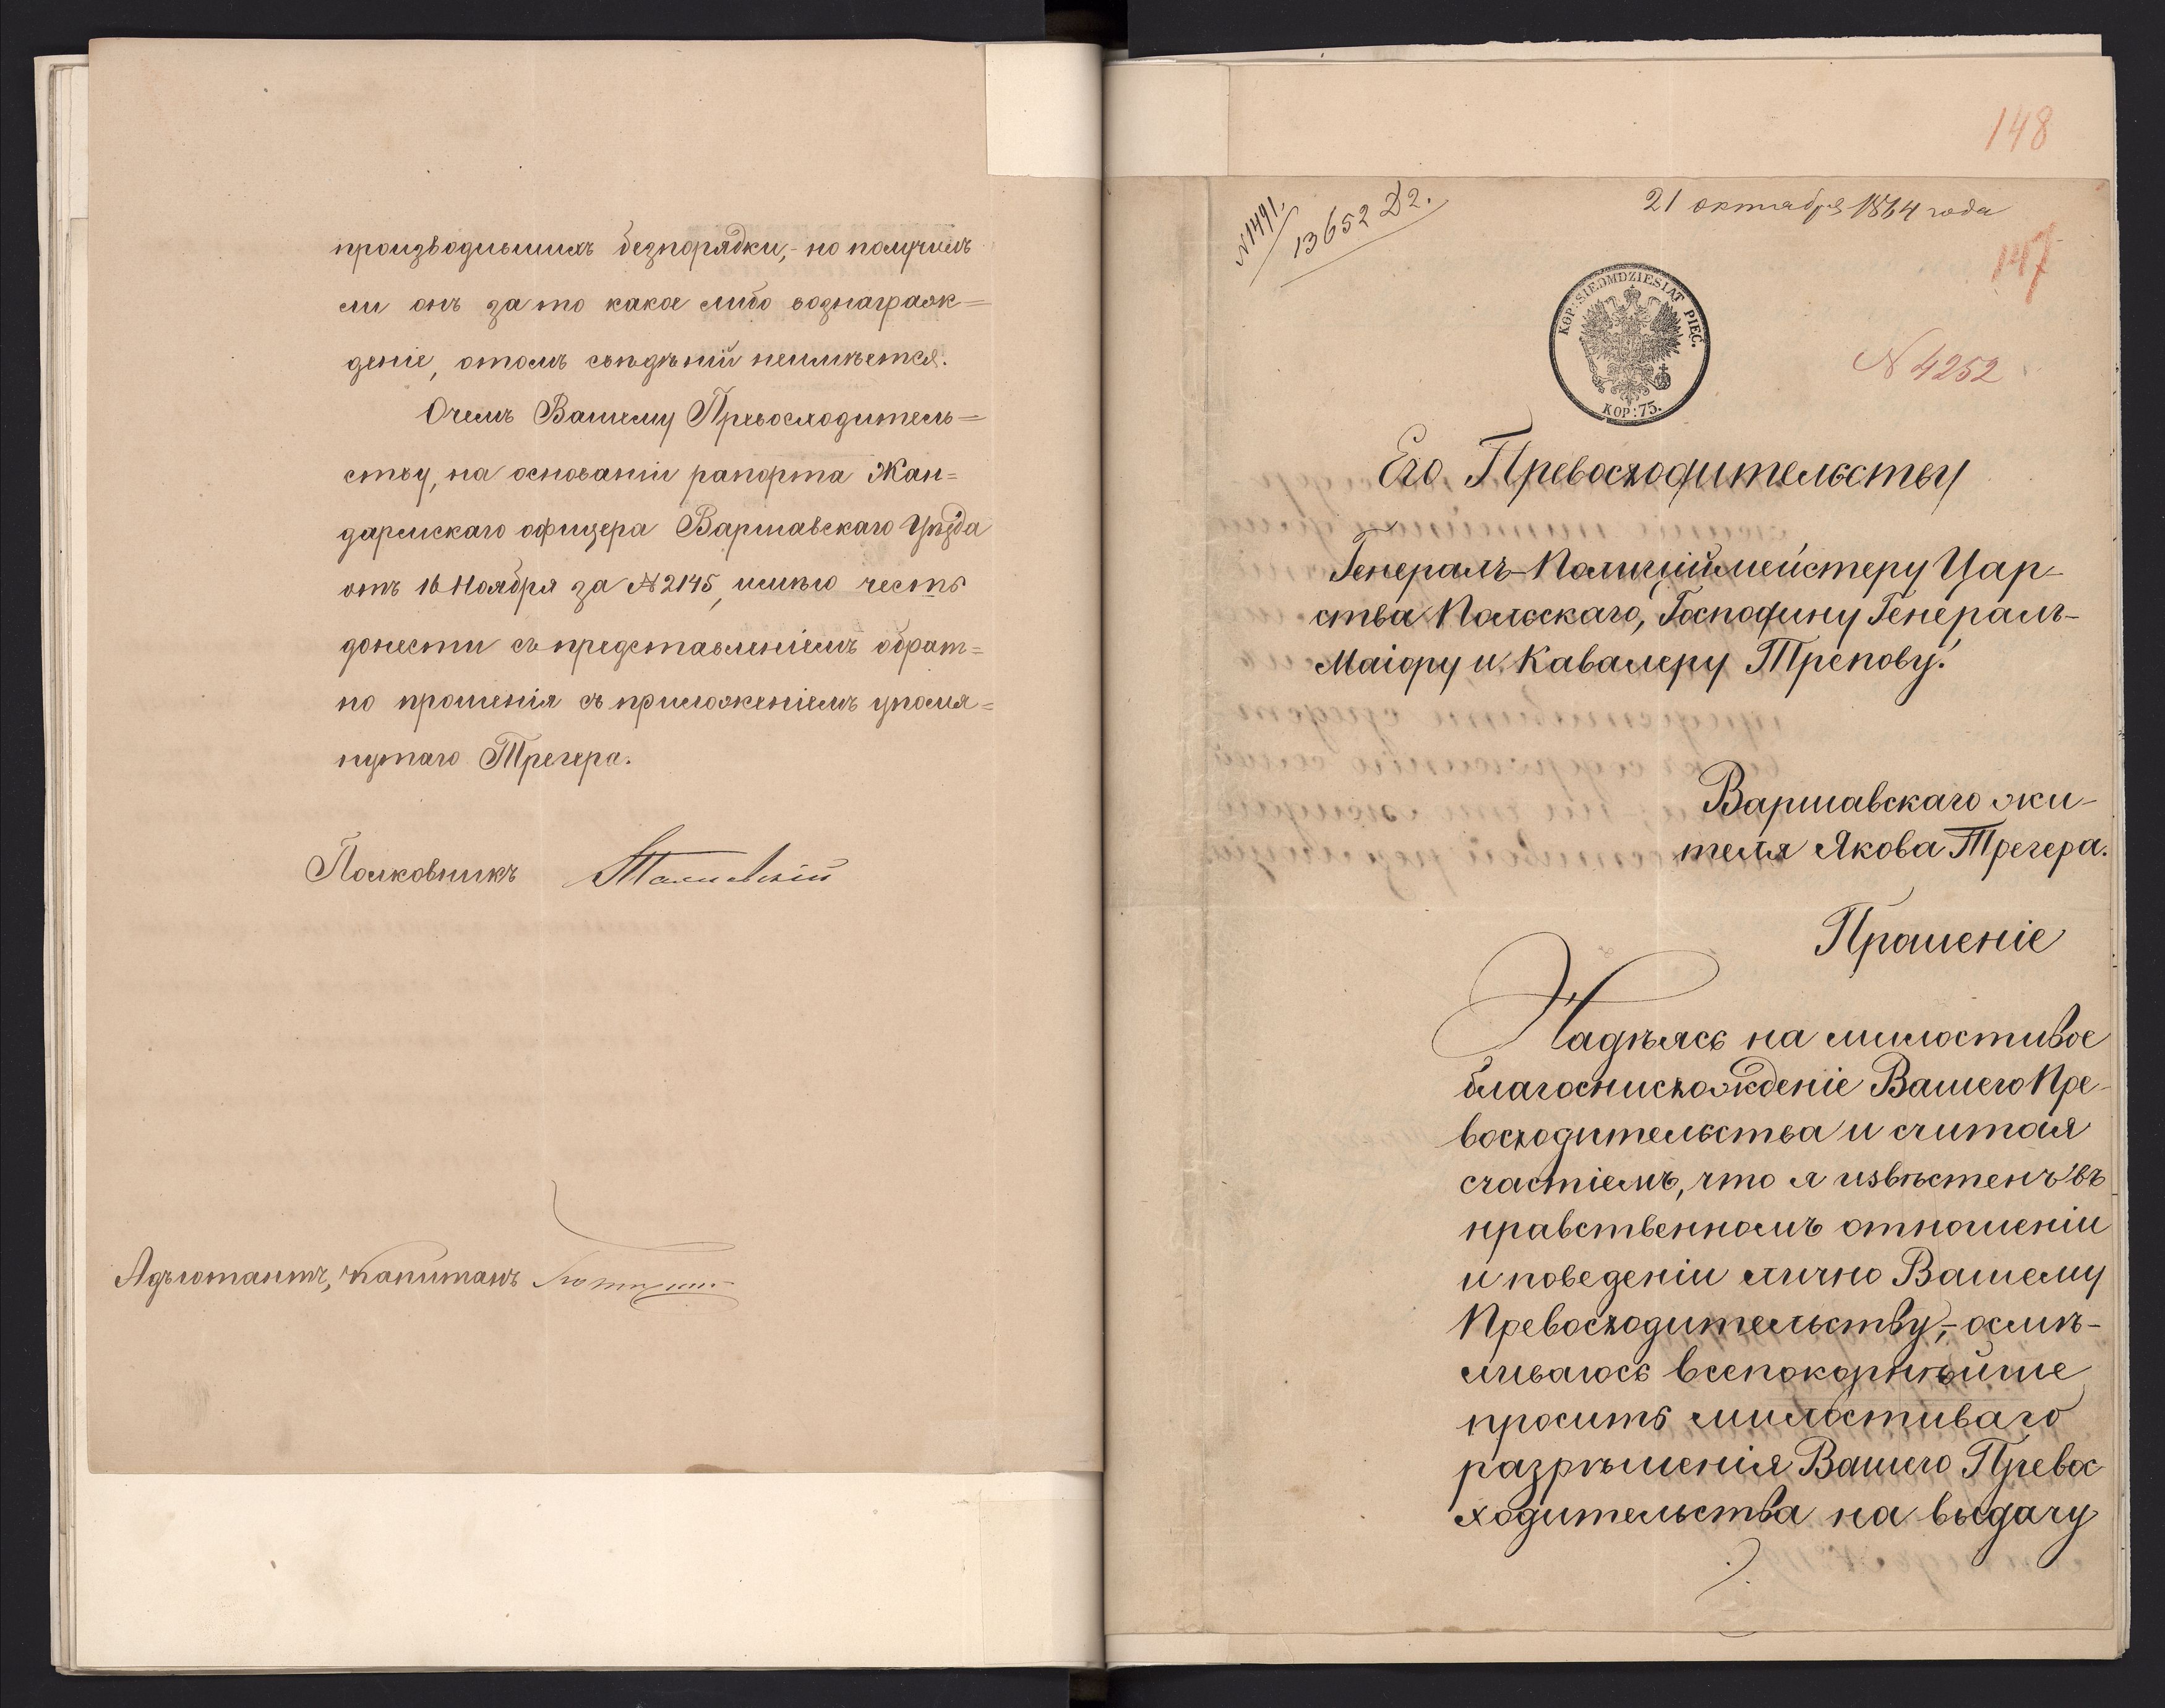 производившихъ безпорядки,- но получилъ
ли онъ за то какое либо вознаграж=
деніе, отомъ свѣдѣній неимѣется.
Очемъ Вашему Превосходитель=
ству, на основаніи рапорта Жан=
дармскаго офицера Варшавскаго Уѣзда
отъ 16 Ноября за № 2145, имѣю честь
донести съ представленіемъ обрат=
но прошенія съ приложеніемъ упомя=
нутаго Трегера.
Полковникъ
Адъютантъ, Капитанъ
148
N 1491.
13652 Д2.
21 октября 1864 года
147
KOP: SIEDMDZIESIĄT PIĘĆ.
KOP: 75.
N 4252
Его Превосходительству
Генералъ-Полиціймейстеру Цар-
ства Польскаго, Господину Генералъ-
Маіору и Кавалеру Трепову.
Варшавскаго жи-
теля Якова Трегера.
Прошеніе
Надѣясь на милостивое
благоснисхожденіе Вашего Пре-
восходительства и считая
счастіемъ, что я извѣстенъ въ
нравственномъ отношеніи
и поведеніи лично Вашему
Превосходительству,- осмѣ-
ливаюсь всепокорнѣйше
просить милостиваго
разрѣшенія Вашего Превос
ходительства на выдачу